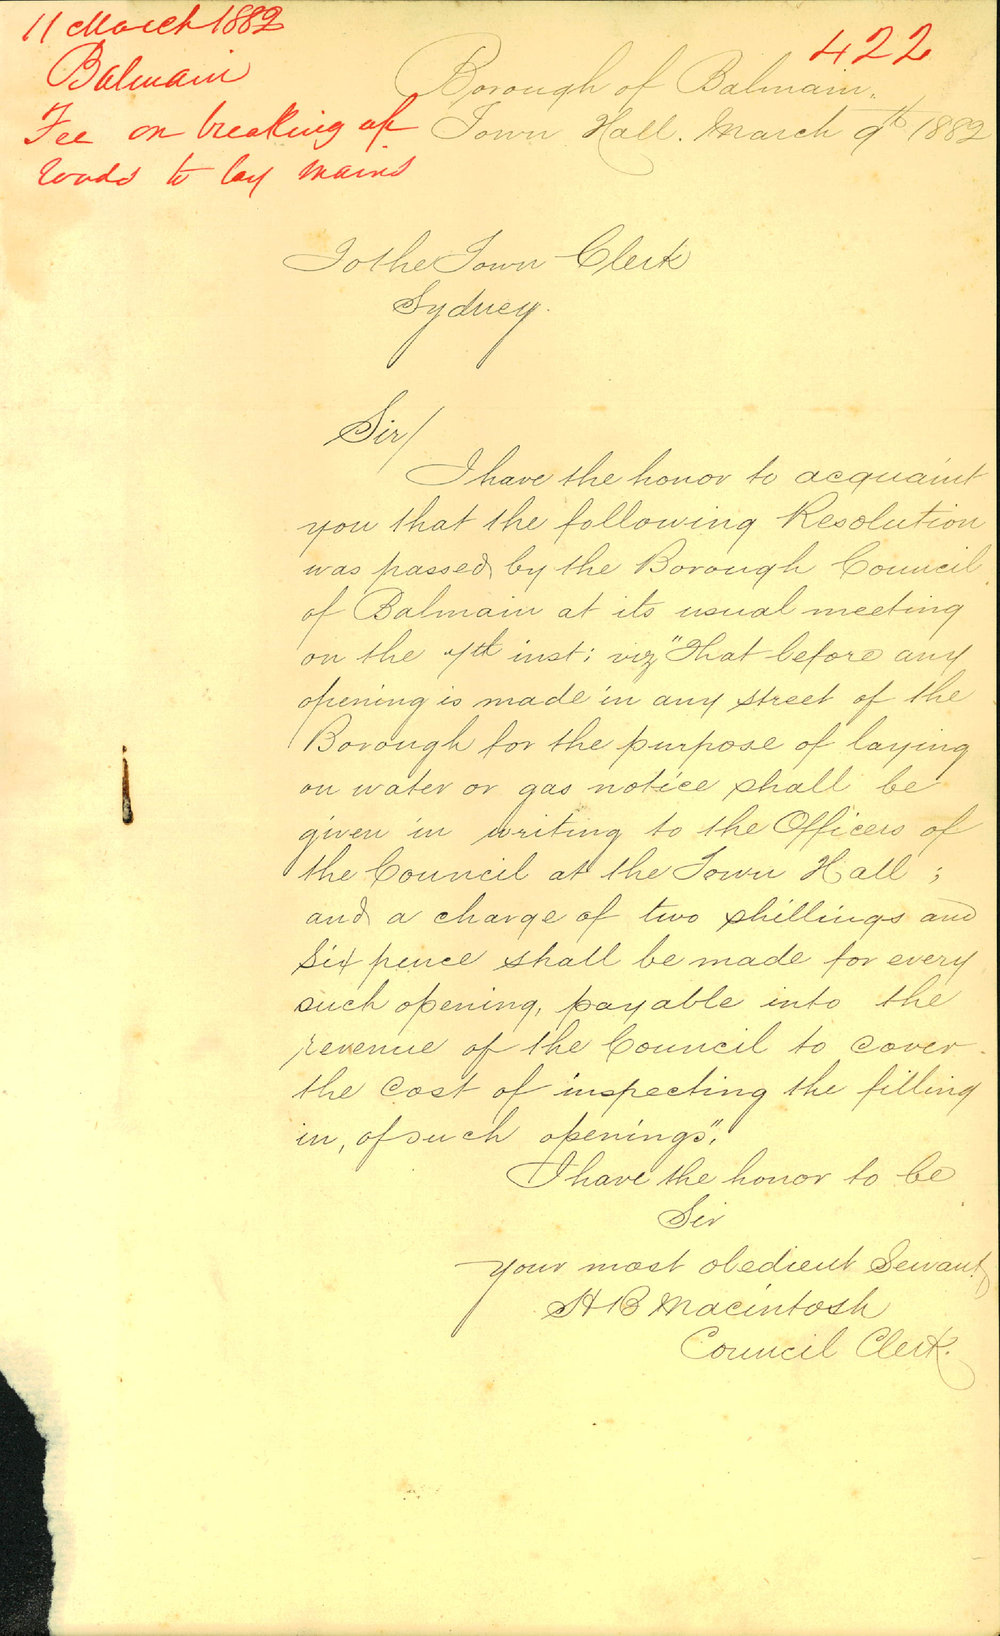 11 March 1882
Balmain
Fee on breaking up
roads to lay mains
422
Borough of Balmain.
Town Hall. March 9th 1882
To the Town Clerk
Sydney.
Sir/
I have the honor to acquaint
you that the following Resolution
was passed by the Borough Council
of Balmain at its usual meeting
on the 7th inst: viz "That before any
opening is made in any street of the
Borough for the purpose of laying
on water or gas notice shall be
given in writing to the Officers of
the Council at the Town Hall ;
and a charge of two shillings and
six pence shall be made for every
such opening, payable into the
revenue of the Council to cover
the cost of inspecting the filling
in, of such openings".
I have the honor to be
Sir
your most obedient Servant
H B Macintosh
Council Clerk.